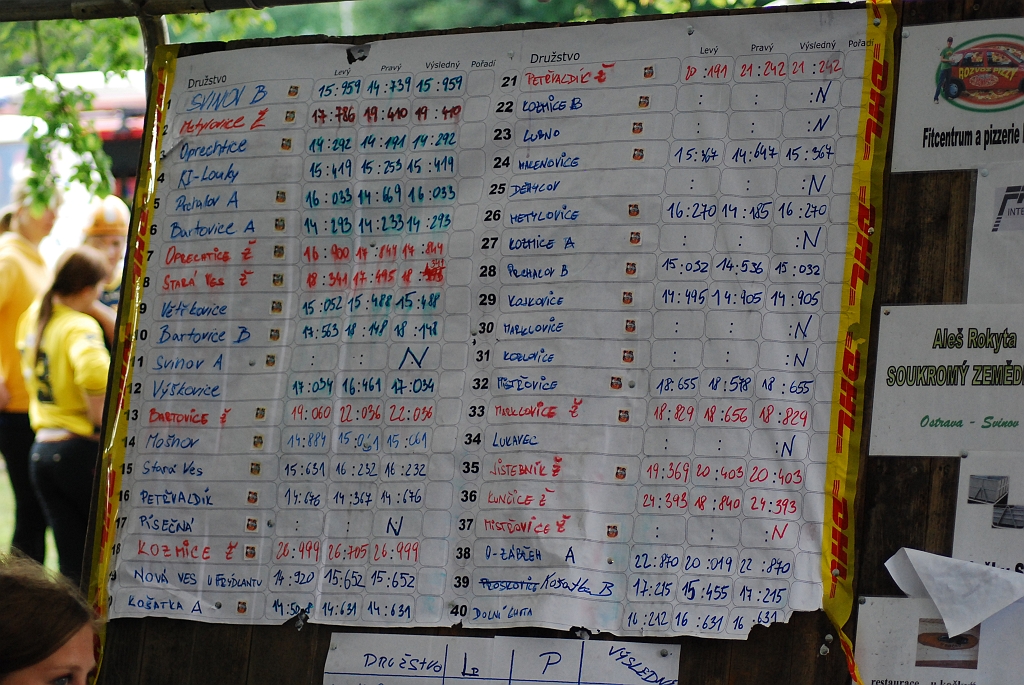 Družstvo Levý Pravý Výsledný Pořadí
1 SVINOV B 15:959 14:739 15:959
2 Metylovice Ž 17:786 19:410 19:410
3 Oprechtice 14:292 14:191 14:292
4 KJ-Louky 15:419 15:253 15:419
5 Puchalov A 16:033 14:669 16:033
6 Bartovice A 14:293 14:233 14:293
7 OPRECHTICE Ž 16:900 17:844 17:844
8 STARÁ VES Ž 18:341 17:495
9 Větřkovice 15:052 15:488 15:488
10 Bartovice B 17:563 18:148 18:148
11 Svinov A : : N
12 Výškovice 17:034 16:461 17:034
13 BARTOVICE Ž 19:060 22:036 22:036
14 Mošnov 14:884 15:061 15:061
15 Stará Ves 15:631 16:232 16:232
16 PETŘVALDÍK 14:676 14:367 14:676
17 PÍSEČNÁ : : N
18 KOZMICE Ž 26:999 26:705 26:999
19 NOVÁ VES U FRÝDLANTU 14:920 15:652 15:652
KOŠATKA A 14:508 14:631 14:631
Družstvo Levý Pravý Výsledný Pořadí
21 PETŘVALDÍK Ž 20:191 21:242 21:242
22 KOZMICE B : : :N
23 LUBNO : : :N
24 MALENOVICE 15:367 14:647 15:367
25 DĚHYLOV : : :N
26 METYLOVICE 16:270 14:185 16:270
27 KOZMICE A : : :N
28 PUCHALOV B 15:032 14:536 15:032
29 KAJKOVICE 14:495 14:905 14:905
30 MARKLOVICE : : :N
31 KOZLOVICE : : :N
32 MISTŘOVICE 18:655 18:578 18:655
33 MARKLOVICE Ž 18:829 18:656 18:829
34 LUKAVEC : : :N
35 JISTEBNÍK Ž 19:369 20:403 20:403
36 KUNČICE Ž 24:393 18:840 24:393
37 MISTŘOVICE Ž : : :N
38 O-ZÁBŘEH A 22:870 20:019 22:870
39 PROSKOVICE Košatka B 17:215 15:455 17:215
40 DOLNÍ LHOTA 16:212 16:631 16:631
DRUŽSTVO L P VÝSLEDNÝ
DHL DHL DHL DHL
ROZVOZ PIZZY
Fitcentrum a pizzerie
INTE
Aleš Rokyta
SOUKROMÝ ZEMĚD
Ostrava - Svinov
restaurace